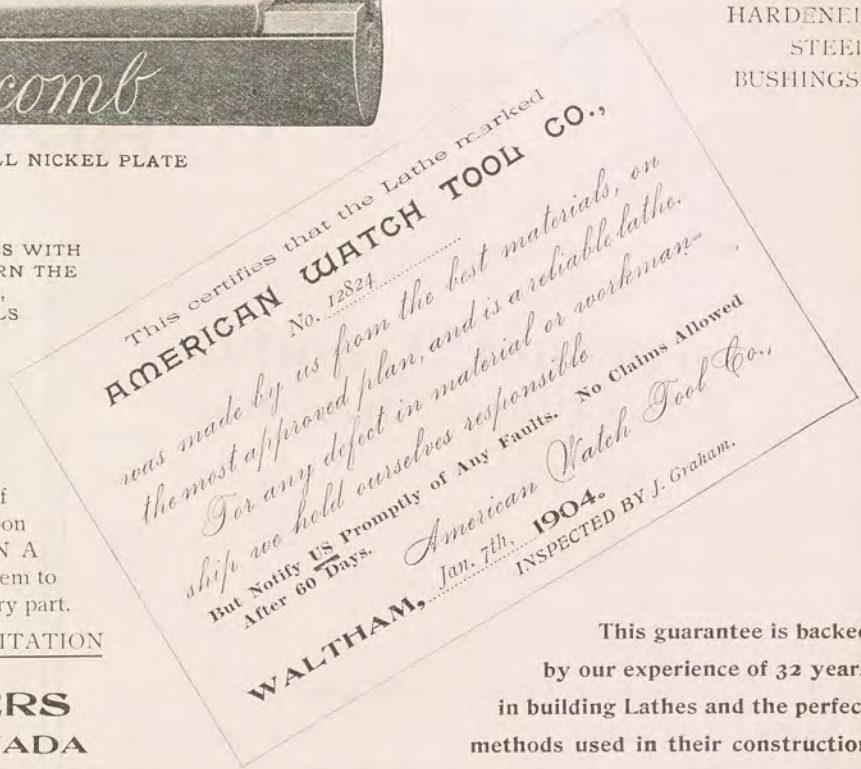 HARDENE
STEE
BUSHINGS
comb
NICKEL PLATE
S WITH
RN THE
LS
This certifies that the Lathe marked
AMERICAN WATCH TOOL CO.,
No. 12824
was made by us from the best materials, on
the most approved plan, and is a reliable lathe.
For any defect in material or workman-
ship we hold ourselves responsible
But Notify US Promptly of Any Faults. No Claims Allowed
After 60 Days.
American Watch Tool Co.,
WALTHAM, Jan. 7th, 1904.
INSPECTED BY J. Graham.
f
on
N A
em to
ry part.
ITATION
ERS
ADA
This guarantee is backe
by our experience of 32 year
in building Lathes and the perfec
methods used in their construction